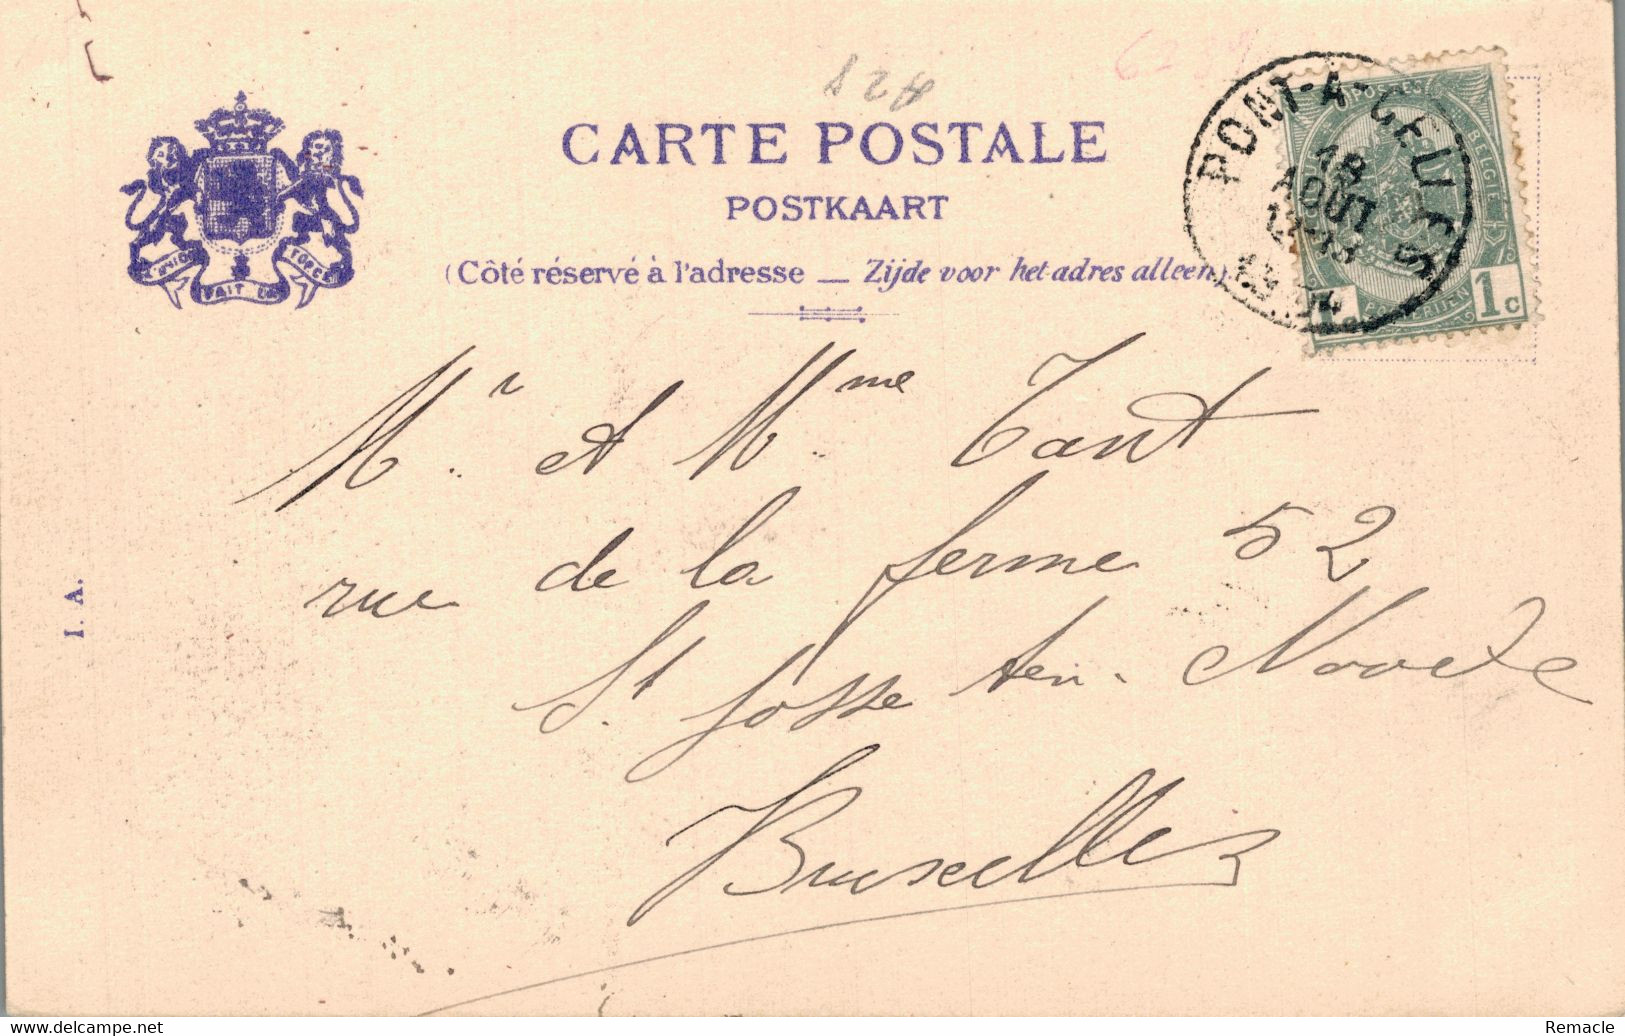 82A
CARTE POSTALE
POSTKAART
(Côté réservé à l'adresse — Zijde voor het adres alleen)
PONT-A-CELLES
18
AOUT
12-13
POSTES
BELGIE
1c
1c
L'UNION FAIT LA FORCE
Mr. et Mme. Tant
rue de la ferme 52
St. Josse ten-Noode
Bruxelles
I. A.
delcampe.net
Remacle